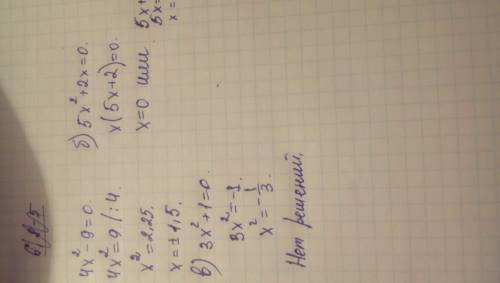 4x² - 9 = 0.
4x² = 9 | : 4.
x² = 2,25.
x = ± 1,5.
б) 5x² + 2x = 0.
x(5x + 2) = 0.
x = 0 или 5x +
5x =
x =
в) 3x² + 1 = 0.
3x² = -1.
x² = -1/3.
Нет решений.